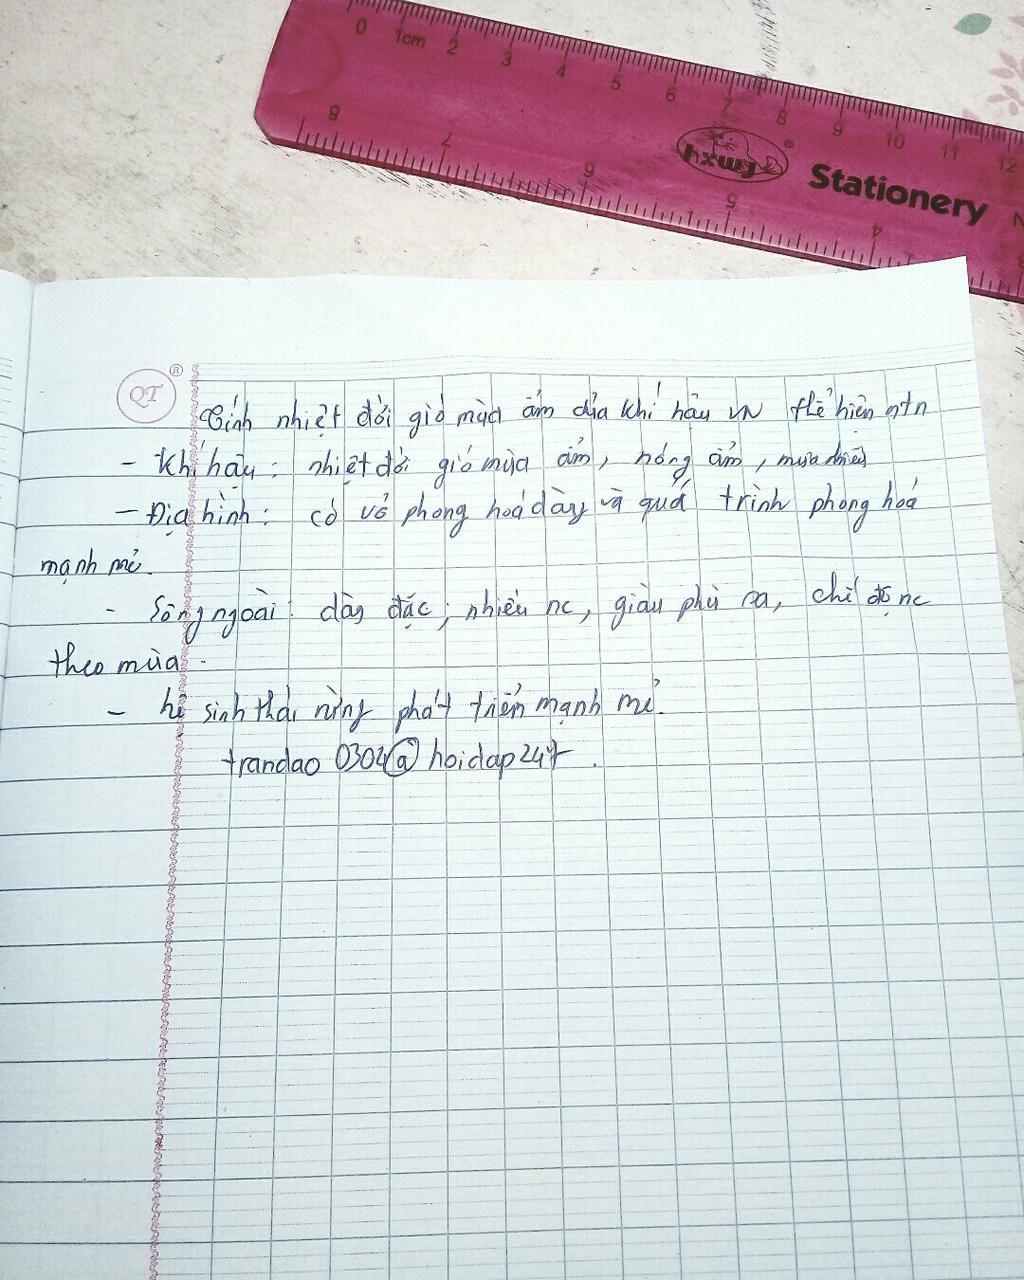 0 1cm 2 3 4 5 6 7 8 9 10 11 12
8 7 6 5 4
hxwj ® Stationery N
QT ®
Tính nhiệt đới gió mùa ẩm của khí hậu VN thể hiện ntn
- Khí hậu : nhiệt đới gió mùa ẩm, nóng ẩm, mưa nhiều
- Địa hình : có vỏ phong hoá dày và quá trình phong hoá
mạnh mẻ.
- Sông ngoài : dày đặc ; nhiều nc, giàu phù sa, chế độ nc
theo mùa.
- hệ sinh thái rừng phát triển mạnh mẻ.
trandao 0304@ hoidap247.